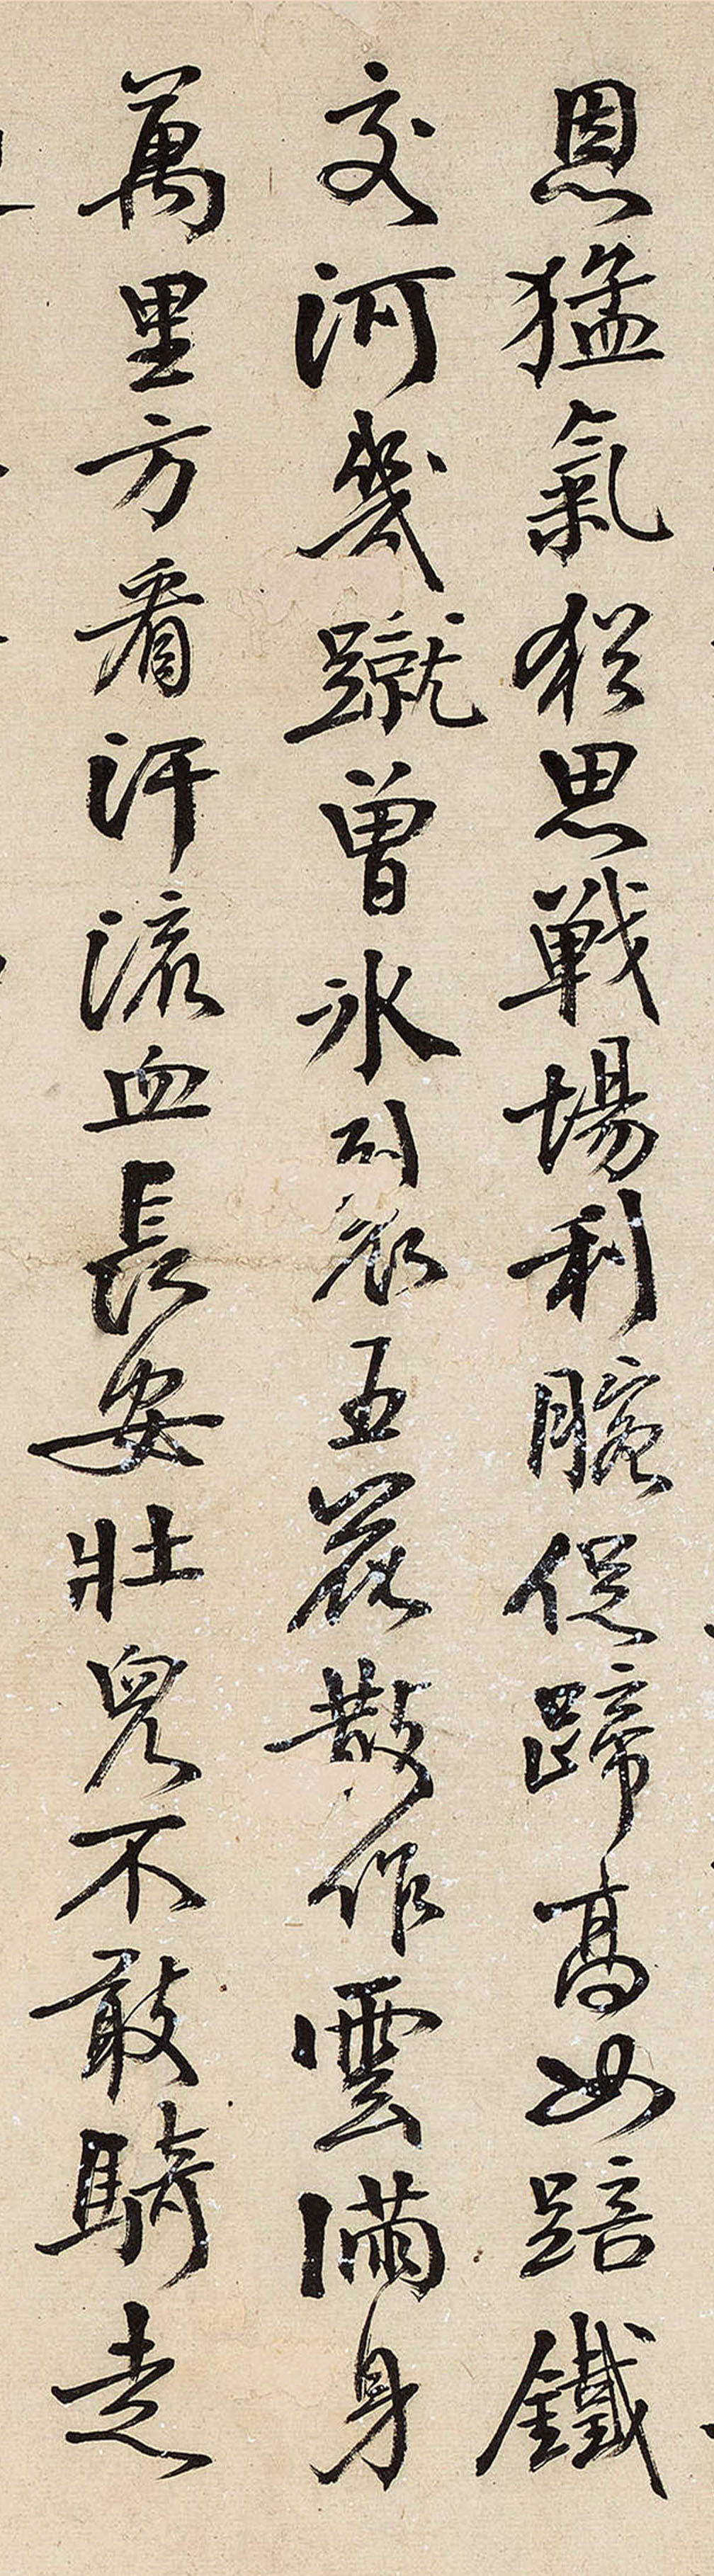 恩猛氣猶思戰場利腕促蹄高如踣鐵
交河幾蹴曾冰裂五花散作雲滿身
萬里方看汗流血長安壯兒不敢騎走